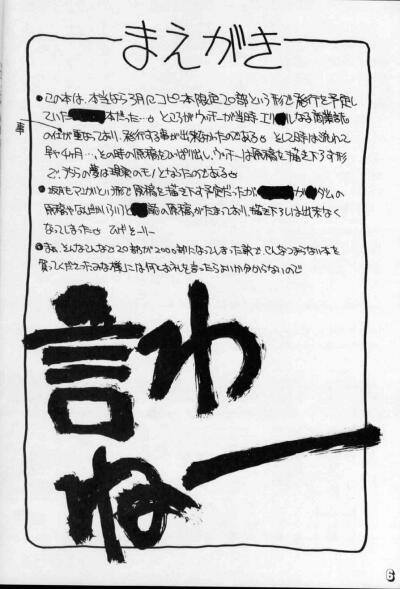 まえがき
●この本は、本当なら3月にコピー本限定20部という形で発行を予定し
ていた 本だった…。ところがウッチーが当時エリ なる商業誌
の仕事が重なっており、発行する事が出来なかったのである。そして時は流れて
早や4ヵ月…、その時の原稿をひっぱり出し、ウッチーは原稿を描き下ろす形
で、 の夢は現実のモノとなったのである。
事
マンガという形で原稿を描き下す予定だったが ダムの
原稿や の原稿がたまっており、描き下ろしは出来なく
なってしまった。ひでーリー
●まぁ、そんなこんなで20部が200部になってしまった訳で、こんなつまらない本を
買ってくださったみな様には何とお礼を言ったらよいか分からないので
言わ
ねー
6